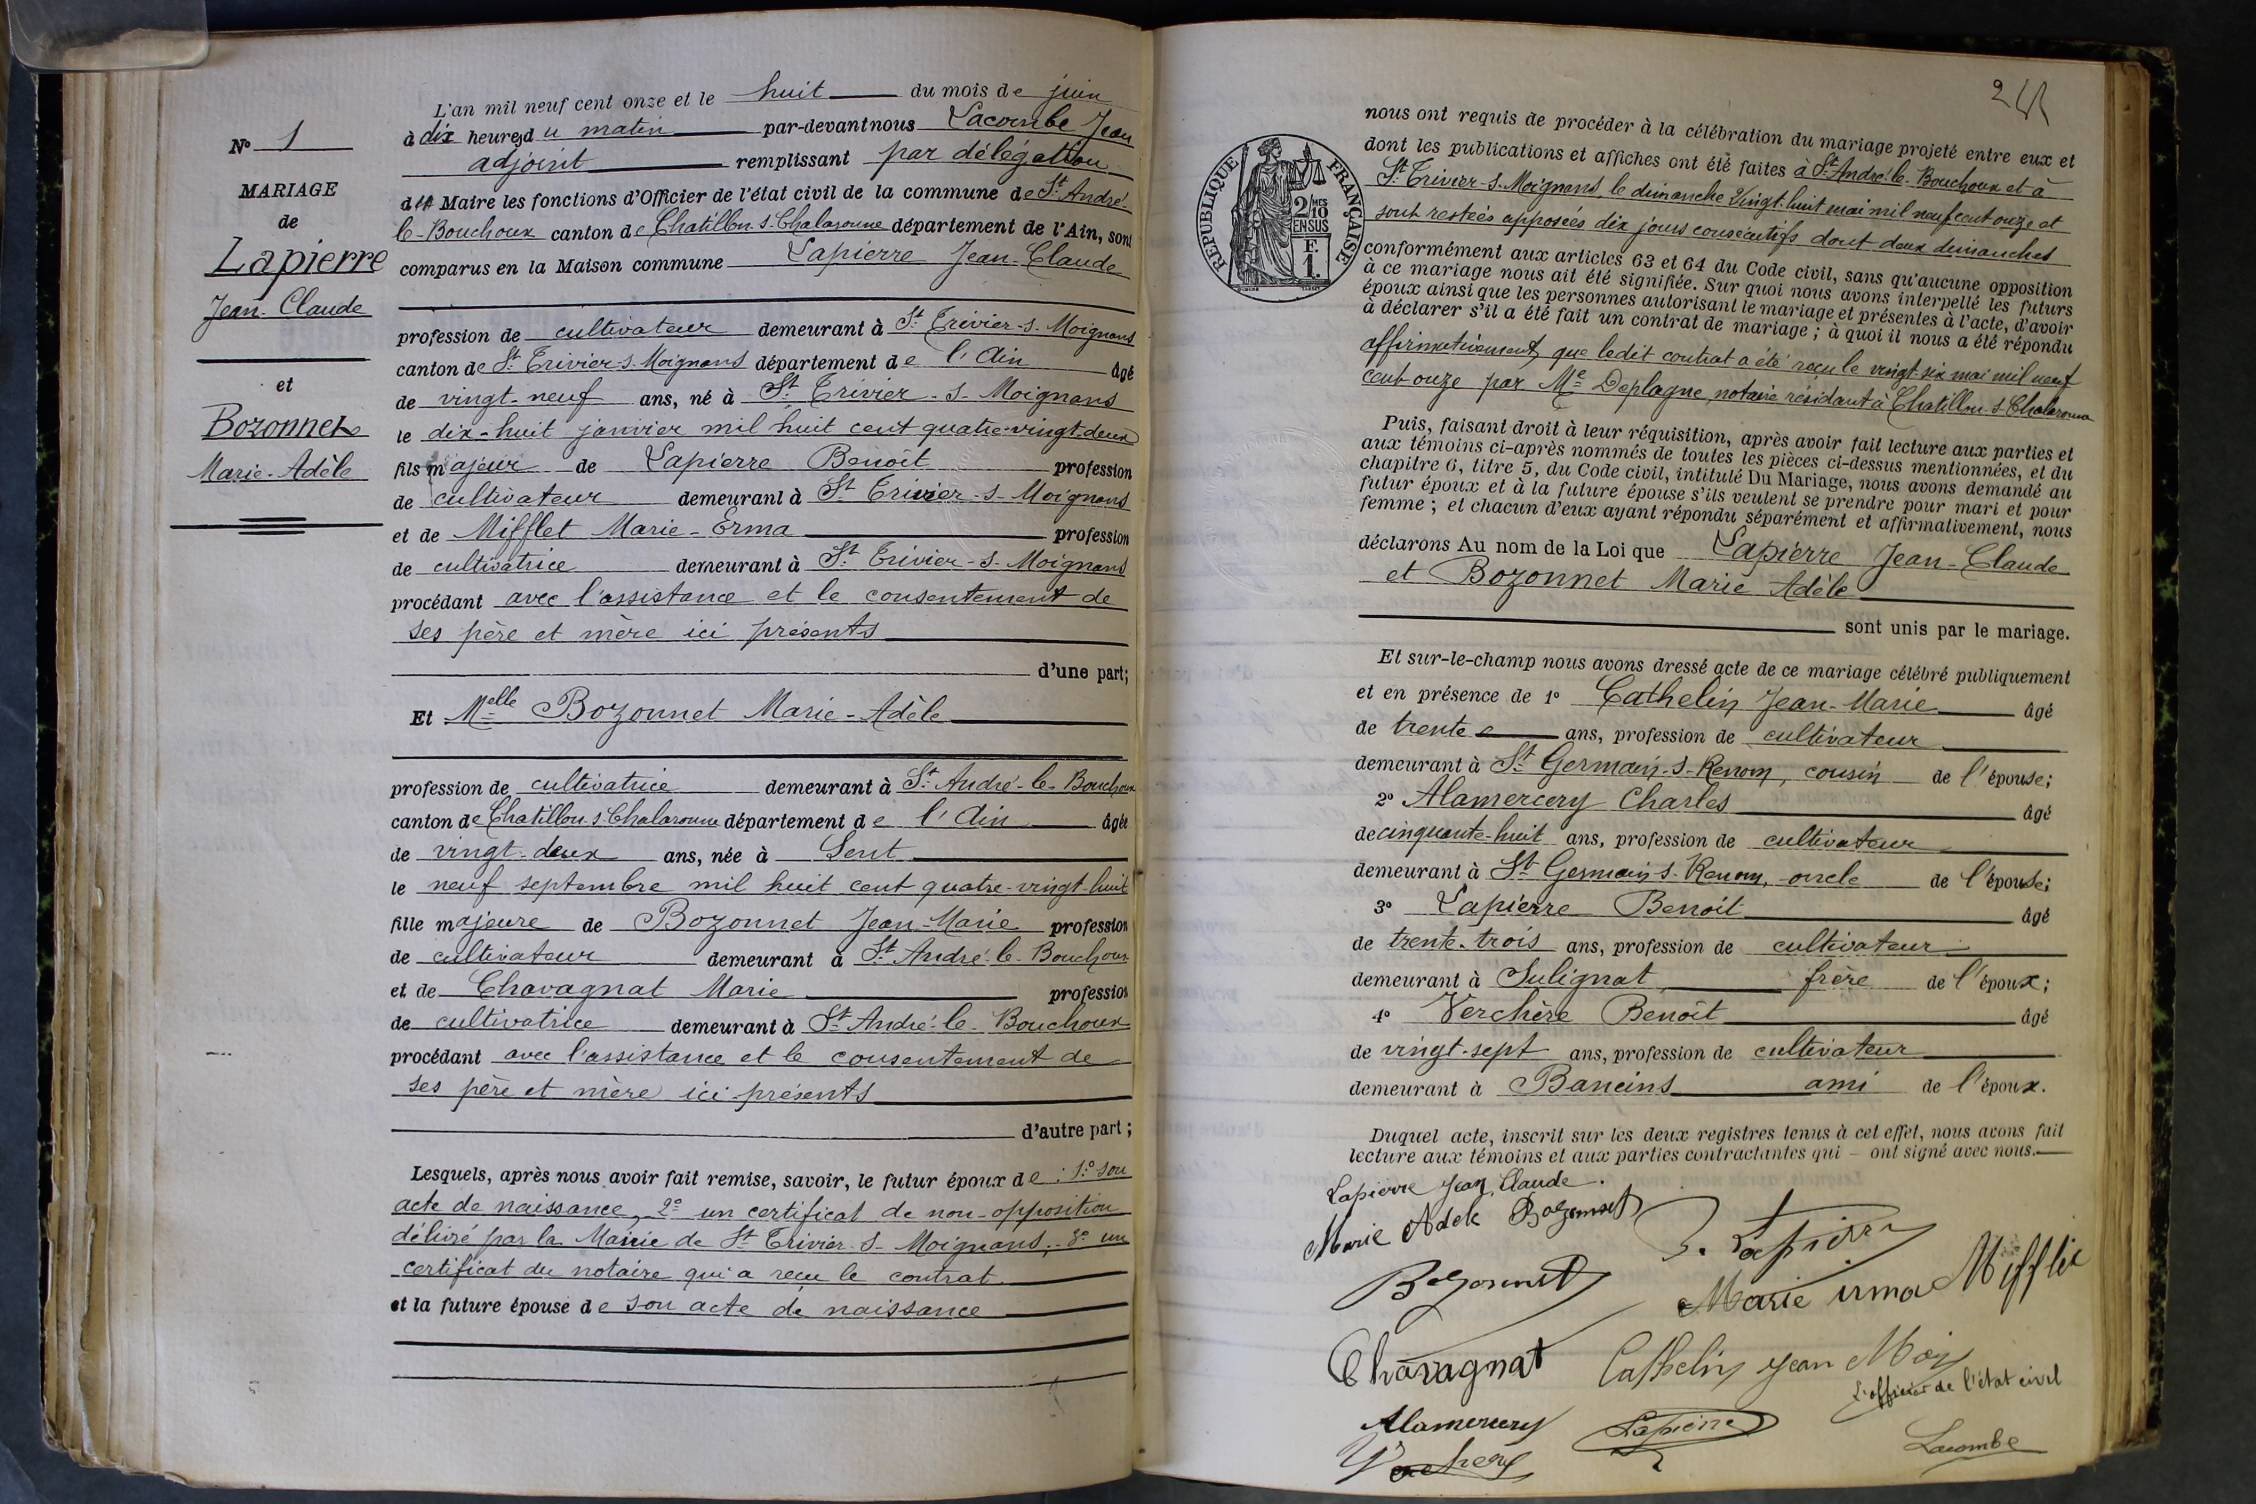 N° 1
MARIAGE
de
Lapierre
Jean-Claude
et
Bozonnet
Marie-Adèle
L'an mil neuf cent onze et le huit du mois de juin
à dix heures du matin par-devant nous Lacombe Jean
adjoint remplissant par délégation
du Maire les fonctions d'Officier de l'état civil de la commune de St André-
le-Bouchoux canton de Chatillon-s-Chalaronne département de l'Ain, sont
comparus en la Maison commune Lapierre Jean-Claude
profession de cultivateur demeurant à St Trivier-s-Moignans
canton de St Trivier-s-Moignans département de l'Ain âgé
de vingt-neuf ans, né à St Trivier-s-Moignans
le dix-huit janvier mil huit cent quatre-vingt-deux
fils majeur de Lapierre Benoît profession
de cultivateur demeurant à St Trivier-s-Moignans
et de Mifflet Marie-Erma profession
de cultivatrice demeurant à St Trivier-s-Moignans
procédant avec l'assistance et le consentement de
ses père et mère ici présents
d'une part;
Et Melle Bozonnet Marie-Adèle
profession de cultivatrice demeurant à St André-le-Bouchoux
canton de Chatillon-s-Chalaronne département de l'Ain âgée
de vingt-deux ans, née à Lent
le neuf septembre mil huit cent quatre-vingt-huit
fille majeure de Bozonnet Jean-Marie profession
de cultivateur demeurant à St André-le-Bouchoux
et de Chavagnat Marie profession
de cultivatrice demeurant à St André-le-Bouchoux
procédant avec l'assistance et le consentement de
ses père et mère ici présents
d'autre part;
Lesquels, après nous avoir fait remise, savoir, le futur époux de : 1° son
acte de naissance, 2° un certificat de non-opposition
délivré par la Mairie de St Trivier-s-Moignans, 3° un
certificat du notaire qui a reçu le contrat
et la future épouse de son acte de naissance
RÉPUBLIQUE FRANÇAISE
2/10 MES
EN SUS
F.
1.
nous ont requis de procéder à la célébration du mariage projeté entre eux et
dont les publications et affiches ont été faites à St André-le-Bouchoux et à
St Trivier-s-Moignans, le dimanche vingt-huit mai mil neuf cent onze et
sont restées apposées dix jours consécutifs dont deux dimanches
conformément aux articles 63 et 64 du Code civil, sans qu'aucune opposition
à ce mariage nous ait été signifiée. Sur quoi nous avons interpellé les futurs
époux ainsi que les personnes autorisant le mariage et présentes à l'acte, d'avoir
à déclarer s'il a été fait un contrat de mariage ; à quoi il nous a été répondu
affirmativement, que ledit contrat a été reçu le vingt six mai mil neuf
cent onze par Me Deplagne, notaire résidant à Chatillon-s-Chalaronne
Puis, faisant droit à leur réquisition, après avoir fait lecture aux parties et
aux témoins ci-après nommés de toutes les pièces ci-dessus mentionnées, et du
chapitre 6, titre 5, du Code civil, intitulé Du Mariage, nous avons demandé au
futur époux et à la future épouse s'ils veulent se prendre pour mari et pour
femme ; et chacun d'eux ayant répondu séparément et affirmativement, nous
déclarons Au nom de la Loi que Lapierre Jean-Claude
et Bozonnet Marie Adèle
sont unis par le mariage.
Et sur-le-champ nous avons dressé acte de ce mariage célébré publiquement
et en présence de 1° Cathelin Jean-Marie âgé
de trente ans, profession de cultivateur
demeurant à St Germain-s-Renom, cousin de l'épouse;
2° Alamercery Charles âgé
de cinquante-huit ans, profession de cultivateur
demeurant à St Germain-s-Renom, oncle de l'épouse;
3° Lapierre Benoît âgé
de trente-trois ans, profession de cultivateur
demeurant à Sulignat, frère de l'époux;
4° Verchère Benoît âgé
de vingt-sept ans, profession de cultivateur
demeurant à Baneins ami de l'époux.
Duquel acte, inscrit sur les deux registres tenus à cet effet, nous avons fait
lecture aux témoins et aux parties contractantes qui - ont signé avec nous.
Lapierre Jean Claude.
Marie Adele Bozonnet
B. Lapierre
Bozonnet
Marie irma Mifflet
Chavagnat
Cathelin Jean Marie
L'officier de l'état civil
Alamercery
Lapierre
Lacombe
Verchère